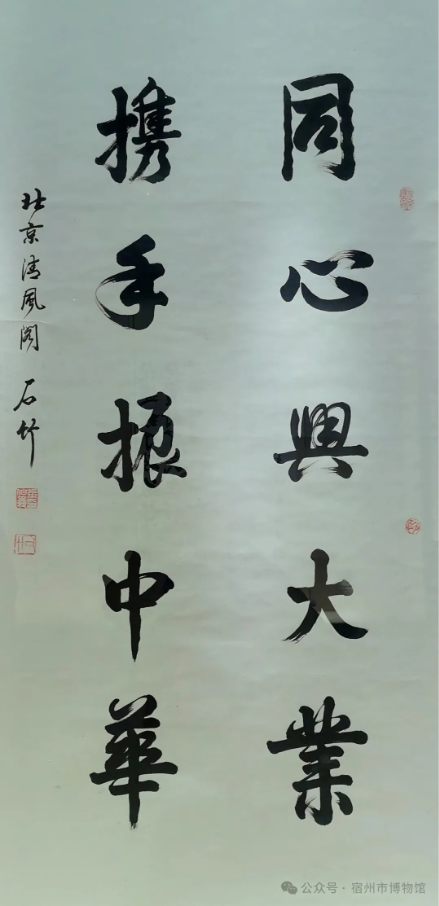 同心興大業
携手振中華
北京清風阁 石竹
公众号·宿州市博物馆